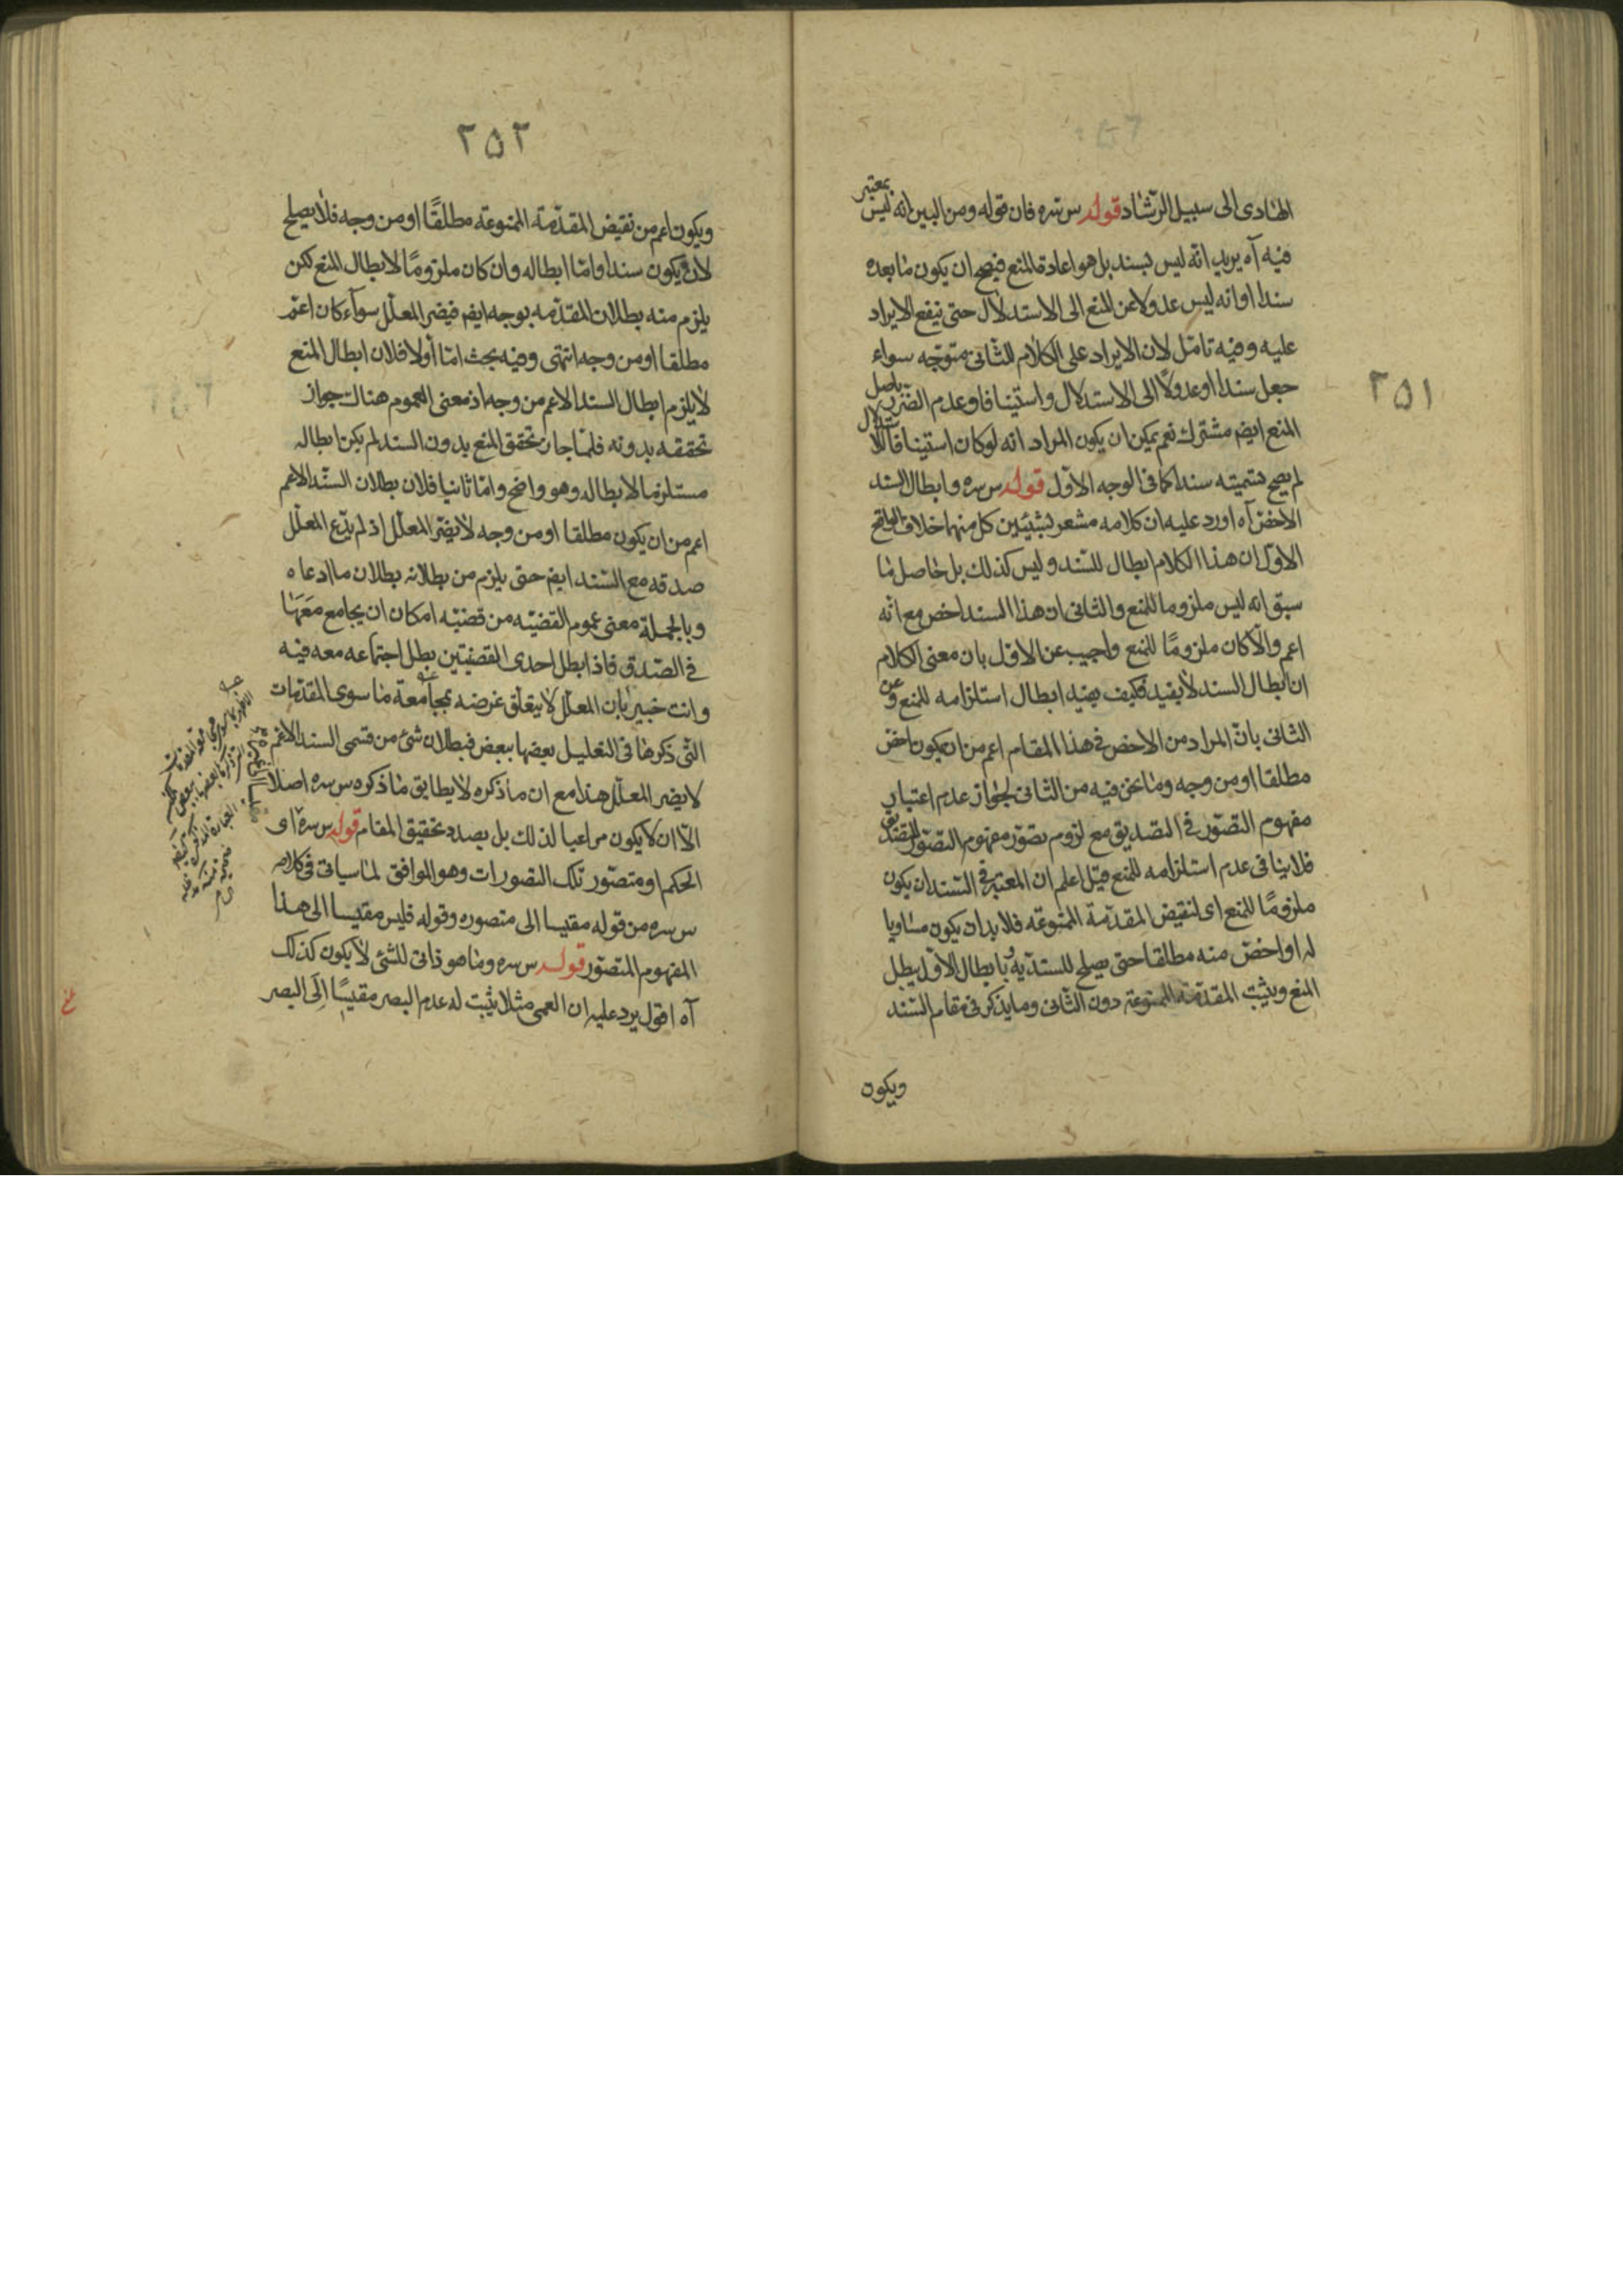 ٢٥١
الهادى الى سبيل الرشاد قوله س سره فان قوله ومن البين انه ليس بمعتبر
فيه آه يريد انه ليس بسند بل هو اعادة للمنع فيصح ان يكون ما بعده
سندا او انه ليس عدولا عن المنع الى الاستدلال حتى ينفع الايراد
عليه وفيه تامل لان الايراد على الكلام الثانى متوجه سواء
جعل سندا او عدولا الى الاستدلال واستينافا وعدم الضرر باصل
المنع ايضا مشترك نعم يمكن ان يكون المراد انه لو كان استينافا لاستدلال
لم يصح تسميته سندا كما فى الوجه الاول قوله س سره وابطال السند
الاخص آه اورد عليه ان كلامه مشعر بشيئين كل منهما خلاف الواقع
الاول ان هذا الكلام ابطال للسند وليس كذلك بل حاصل ما
سبق انه ليس ملزوما للمنع والثانى ان هذا السند اخص مع انه
اعم والا كان ملزومًا للمنع واجيب عن الاول بان معنى الكلام
ان ابطال السند لا يفيد فكيف يفيد ابطال استلزامه للمنع وعن
الثانى بان المراد من الاخص فى هذا المقام اعم من ان يكون اخص
مطلقا او من وجه وما نحن فيه من الثانى لجواز عدم اعتبار
مفهوم التصور فى التصديق مع لزوم تصور مفهوم التصور للتصديق
فلا ينافى عدم استلزامه للمنع قيل اعلم ان المعتبر فى السند ان يكون
ملزومًا للمنع اى لنقيض المقدمة الممنوعة فلا بد ان يكون مساويا
له او اخص منه مطلقا حتى يصلح للسندية وبابطال الاول يبطل
المنع ويثبت المقدمة الممنوعة دون الثانى وما يذكر فى مقام السند
ويكون
٢٥٢
ويكون اعم من نقيض المقدمة الممنوعة مطلقًا او من وجه فلا يصلح
لان يكون سندا واما ابطاله وان كان ملزومًا لابطال المنع لكن
يلزم منه بطلان المقدمه بوجه ايضا فيضر المعلل سوآء كان اعم
مطلقا او من وجه انتهى وفيه بحث اما أولا فلان ابطال المنع
لا يلزم ابطال السند الاعم من وجه اذ معنى العموم هناك جواز
تحققه بدونه فلما جاز تحقق المنع بدون السند لم يكن ابطاله
مستلزما لابطاله وهو واضح واما ثانيا فلان بطلان السند الاعم
اعم من ان يكون مطلقا او من وجه لا يضر المعلل اذ لم يدع المعلل
صدقه مع السند ايضا حتى يلزم من بطلانه بطلان ما ادعاه
وبالجملة معنى عموم القضيه من قضيه امكان ان يجامع معها
فى الصدق فاذا بطل احدى القضيتين بطل اجتماعه معه فيه
وانت خبير بان المعلل لا يتعلق غرضه بمجامعة ما سوى المقدمات
التى ذكرها فى التعليل بعضها ببعض فبطلان شئ من قسمى السند الاعم
لا يضر المعلل هذا مع ان ما ذكره لا يطابق ما ذكره س سره اصلا
الا ان لا يكون مراعيا لذلك بل يصدد تحقيق المقام قوله س سره اى
الحكم او متصور تلك التصورات وهو الموافق لما سياتى فى كلامه
س سره من قوله مقيسا الى متصوره وقوله فليس مقيسا الى هذا
المفهوم المتصور قوله س سره وما هو ذاتى للشئ لا يكون كذلك
آه اقول يرد عليه ان العمى مثلا يثبت له عدم البصر مقيسًا الى البصر